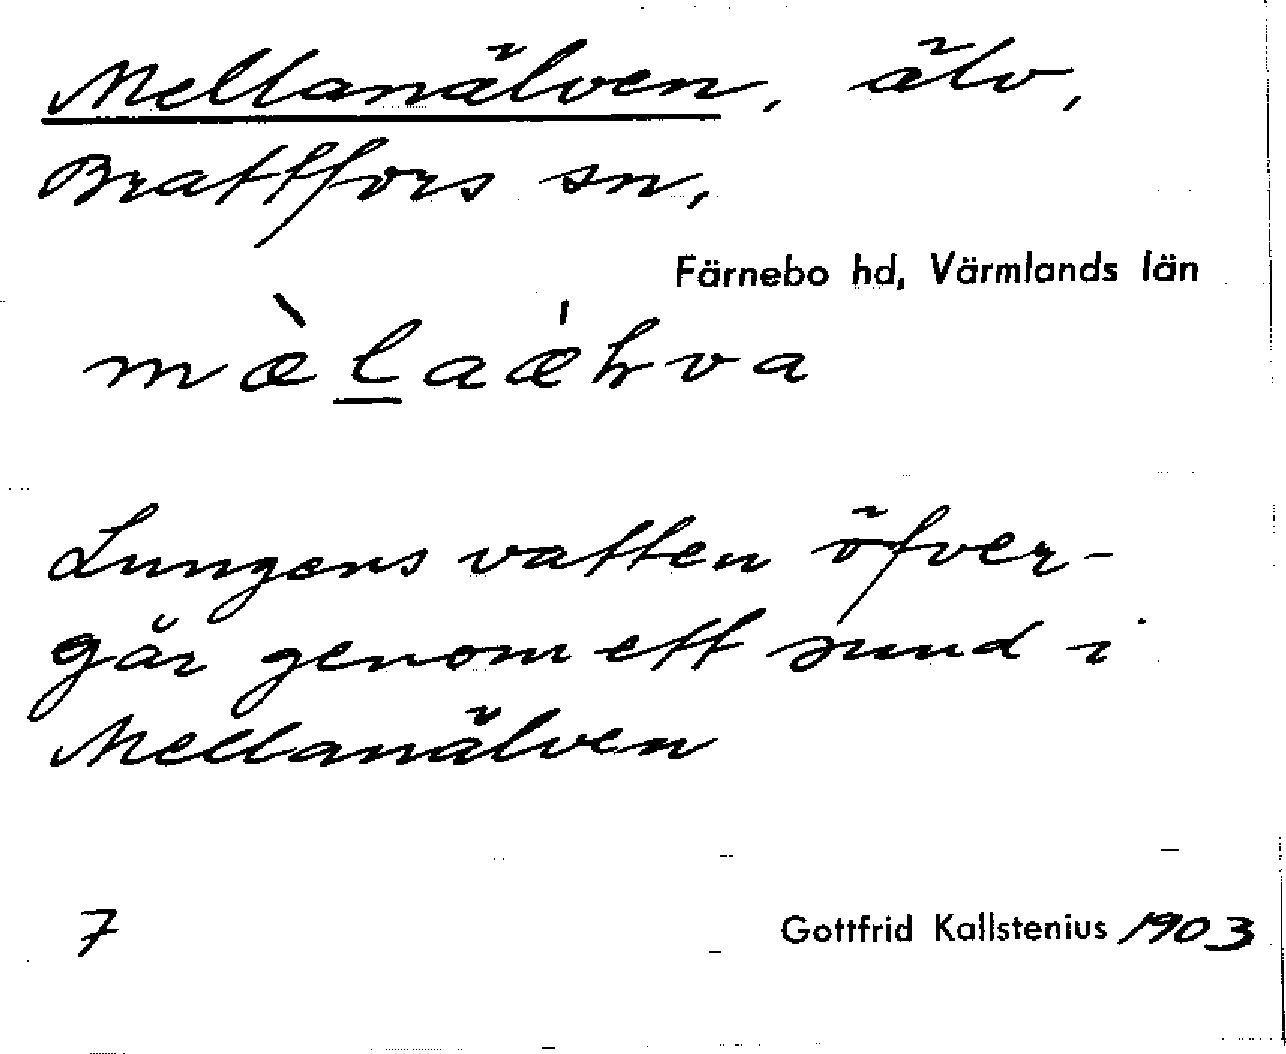 Mellanälven, älv,
Brattfors sn,
Färnebo hd, Värmlands län
mæ̀l̲aǽƚva
Lungens vatten öfver-
går genom ett sund i
Mellanälven
7
Gottfrid Kallstenius 1903